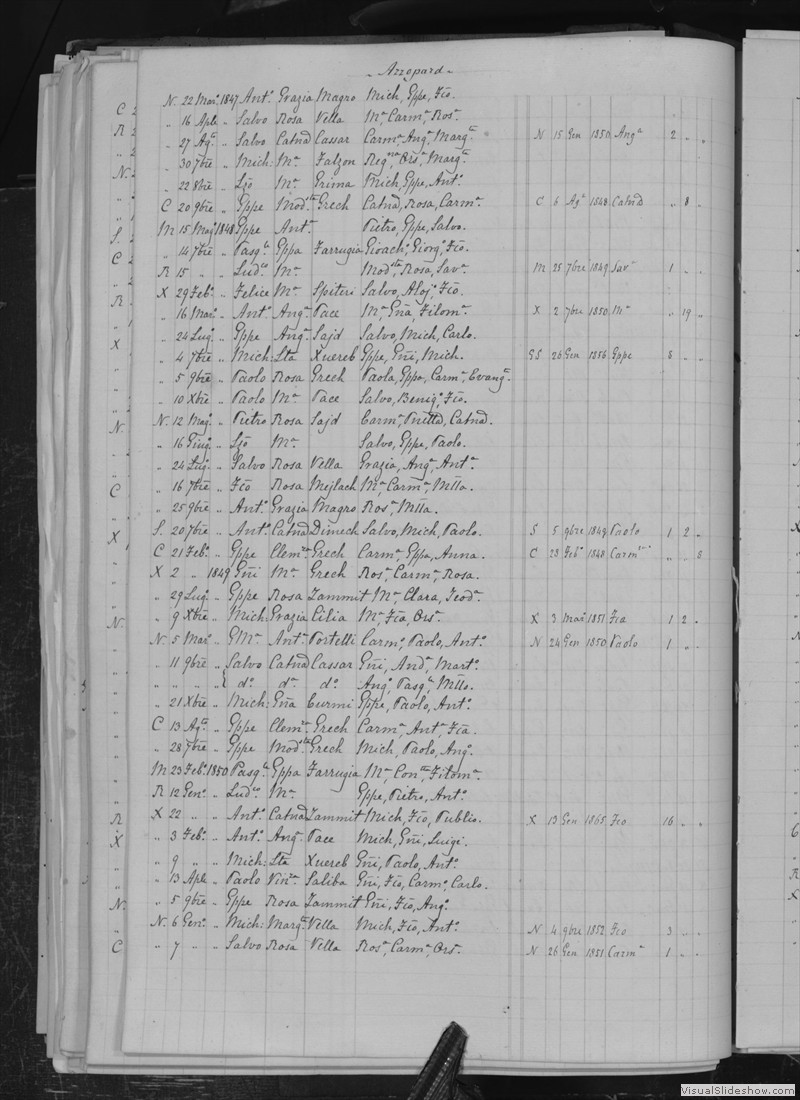 Azzopard
N. 22 Mar.º 1847 Ant.º Grazia Magro Mich, Gppe, Fco.
" 16 Aple " Salvo Rosa Vella M.ª Carm.ª Ros.ª
" 27 Ag.º " Salvo Catnd Cassar Carm.ª Ang.ª Marg.ta N 15 Gen 1850 Ang.ª 2 " "
" 30 7bre " Mich: M.ª Falzon Reg.na Ors.ª Marg.ta
" 22 8bre " M.ª Grima Mich, Gppe, Ant.º
C 20 9bre " Gppe Mod.sta Grech Catnd, Rosa, Carm.ª C 6 Ag.º 1848 Catnd " 8 "
M 15 Mag.º 1848 Gppe Ant.ª Pietro, Gppe, Salvo.
" 14 7bre " Pasq.le Gppa Farrugia Gioach.º Giorg.º Fco.
R 15 " " Lud.co M.ª Mod.sta, Rosa, Sav.ª M 25 7bre 1849 Sav.ª 1 " "
X 29 Feb.º " Felice M.ª Spiteri Salvo, Aloj.º Fco.
" 16 Mar.º " Ant.º Ang.ª Pace M.ª Gña, Filom.ª X 2 7bre 1850 M.ª " 19 "
" 24 Lug.º " Gppe Ang.ª Sajd Salvo, Mich, Carlo.
" 4 7bre " Mich: Xuereb Gppe, Gñi, Mich. GS 26 Gen 1856 Gppe 8 " "
" 5 9bre " Paolo Rosa Grech Paola, Gppa, Carm.ª Evang.ª
" 10 Xbre " Paolo M.ª Pace Salvo, Benig.º, Fco.
N. 12 Mag.º " Pietro Rosa Sajd Carm.ª, Catnd.
" 16 Giug.º " M.ª Salvo, Gppe, Paolo.
" 24 Lug.º " Salvo Rosa Vella Grazia, Ang.ª, Ant.ª
" 16 7bre " Fco Rosa Mejlach M.ª Carm.ª, Mtta.
" 25 9bre " Ant.º Grazia Magro Ros.ª, Mtta.
S. 20 7bre " Ant.º Catnd Dimech Salvo, Mich, Paolo. S 5 9bre 1849 Paolo 1 2 "
C 21 Feb.º " Gppe Clem.za Grech Carm.ª, Gppa, Anna. C 23 Feb.º 1848 Carm.ª " " 8
X 2 " 1849 Gñi M.ª Grech Ros.ª, Carm.ª, Rosa.
" 29 Lug.º " Gppe Rosa Zammit M.ª, Clara, Teod.ª
" 9 Xbre " Mich: Grazia Cilia M.ª, Fca, Ors.ª X 3 Mar.º 1851 Fca 1 2 "
N. 5 Mar.º " GM.ª Ant.ª Portelli Carm.º, Paolo, Ant.º N 24 Gen 1850 Paolo 1 " "
" 11 9bre " Salvo Catnd Cassar Gñi, And.ª, Mart.º
" " " " { d.º d.ª d.º Ang.º, Pasq.le, Mtto.
" 21 Xbre " Mich: Gña Curmi Gppe, Paolo, Ant.º
C 13 Ag.º " Gppe Clem.za Grech Carm.ª, Ant.ª, Fca.
" 28 7bre " Gppe Mod.sta Grech Mich, Paolo, Ang.º
M 23 Feb.º 1850 Pasq.le Gppa Farrugia M.ª, Con.tta, Filom.ª
R 12 Gen.º " Lud.co M.ª Gppe, Pietro, Ant.º
X 22 " " Ant.º Catnd Zammit Mich, Fco, Publio. X 13 Gen 1865 Fco 16 " "
" 3 Feb.º " Ant.º Ang.ª Pace Mich, Gñi, Luigi.
" 9 " " Mich: Xuereb Gñi, Paolo, Ant.º
" 13 Aple " Paolo Vin.za Saliba Gñi, Fco, Carm.º, Carlo.
" 5 9bre " Gppe Rosa Zammit Gñi, Fco, Ang.º
N. 6 Gen.º " Mich: Marg.ta Vella Mich, Fco, Ant.º N 4 9bre 1852 Fco 3 " "
" 7 " " Salvo Rosa Vella Ros.ª, Carm.ª, Ors.ª N 26 Gen 1851 Carm.ª 1 " "
VisualSlideshow.com